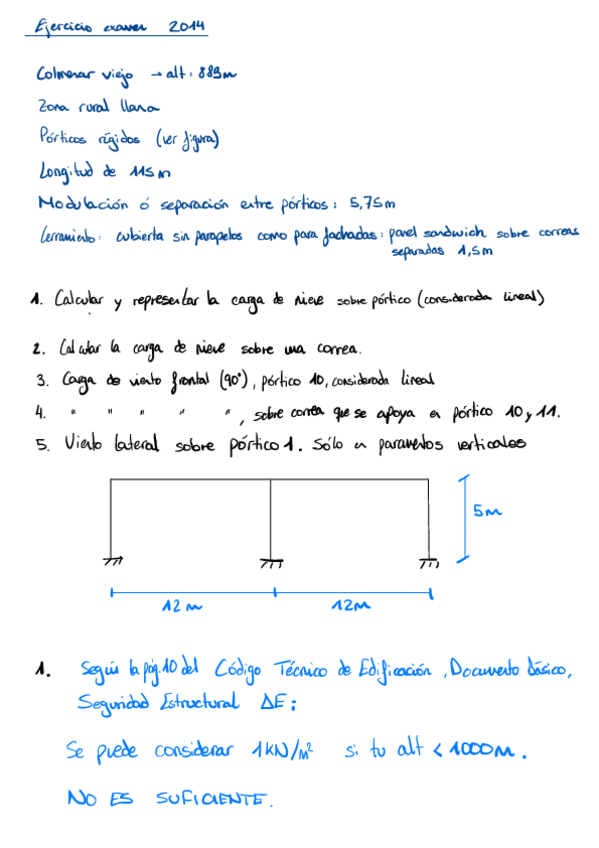 Ejercicio examen 2014
Colmenar viejo → alt: 883m
Zona rural llana
Pórticos rígidos (ver figura)
Longitud de 115m
Modulación ó separación entre pórticos: 5,75m
Cerramiento: cubierta sin parapetos como para fachadas: panel sandwich sobre correas
separadas 1,5m
1. Calcular y representar la carga de nieve sobre pórtico (considerada lineal)
2. Calcular la carga de nieve sobre una correa.
3. Carga de viento frontal (90°), pórtico 10, considerada lineal
4. " " " " ", sobre correa que se apoya en pórtico 10 y 11.
5. Viento lateral sobre pórtico 1. Sólo en paramentos verticales
5m
12m
12m
1. Según la pág.10 del Código Técnico de Edificación, Documento básico,
Seguridad Estructural AE:
Se puede considerar 1KN/m² si tu alt < 1000m.
NO ES SUFICIENTE.